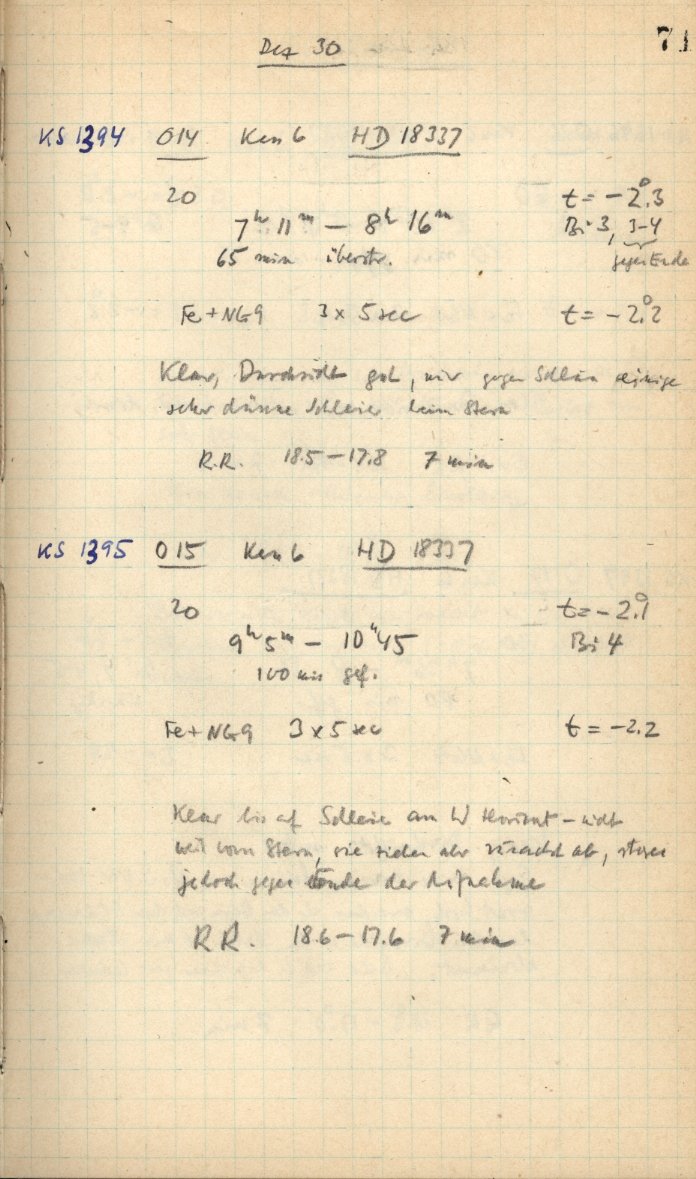 Dez 30 71
KS 1394 014 Ken 6 HD 18337
20 t = -2°.3
7h 11m — 8h 16m Bi 3, 3-4
65 min überstr. gegen Ende
Fe + NG9 3 x 5 sec t = -2°.2
Klar, Durchsicht gut, nur gegen Schluss einige
sehr dünne Schleier beim Stern
R.R. 18.5 — 17.8 7 min
KS 1395 015 Ken 6 HD 18337
20 t = -2°.1
9h 5m — 10h 45 Bi 4
100 min gef.
Fe + NG9 3 x 5 sec t = -2.2
Klar bis auf Schleier am W Horizont - nicht
weit vom Stern, sie ziehen aber zunächst ab, stören
jedoch gegen Ende der Aufnahme
R.R. 18.6 — 17.6 7 min